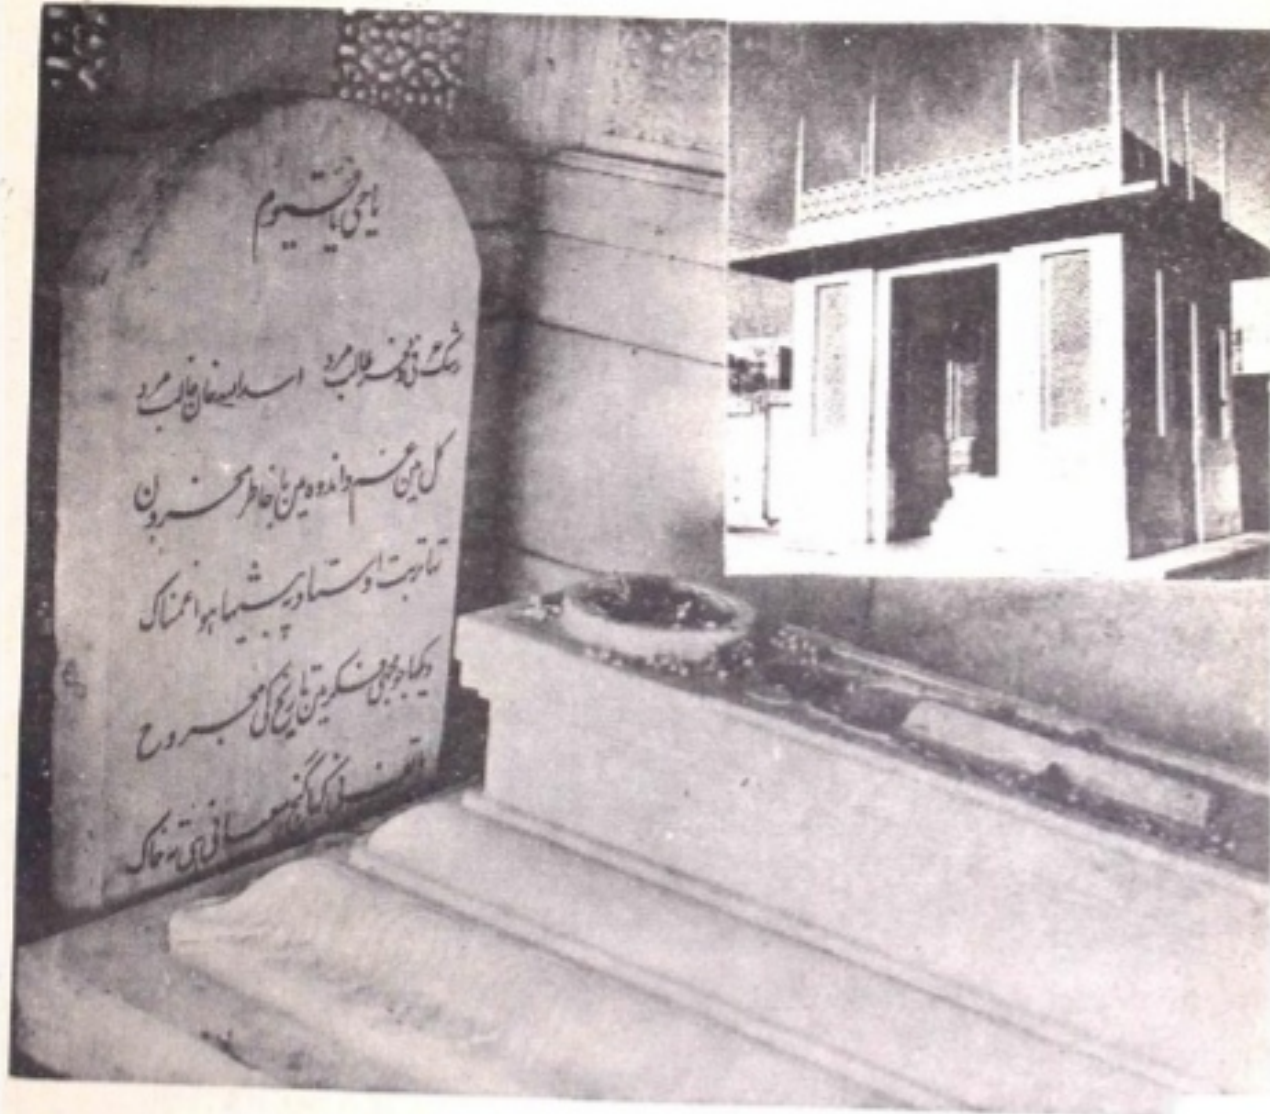 یا حی یا قیوم
رشک عرفی و فخر طالب مرد اسد اللہ خان غالب مرد
کل میں غم و اندوہ میں با خاطر محزون
تھا تربت استاد پہ بیٹھا ہوا غمناک
دیکھا جو مجھے فکر میں تاریخ کی مجروح
ہاتف نے کہا گنج معانی ہے تہ خاک